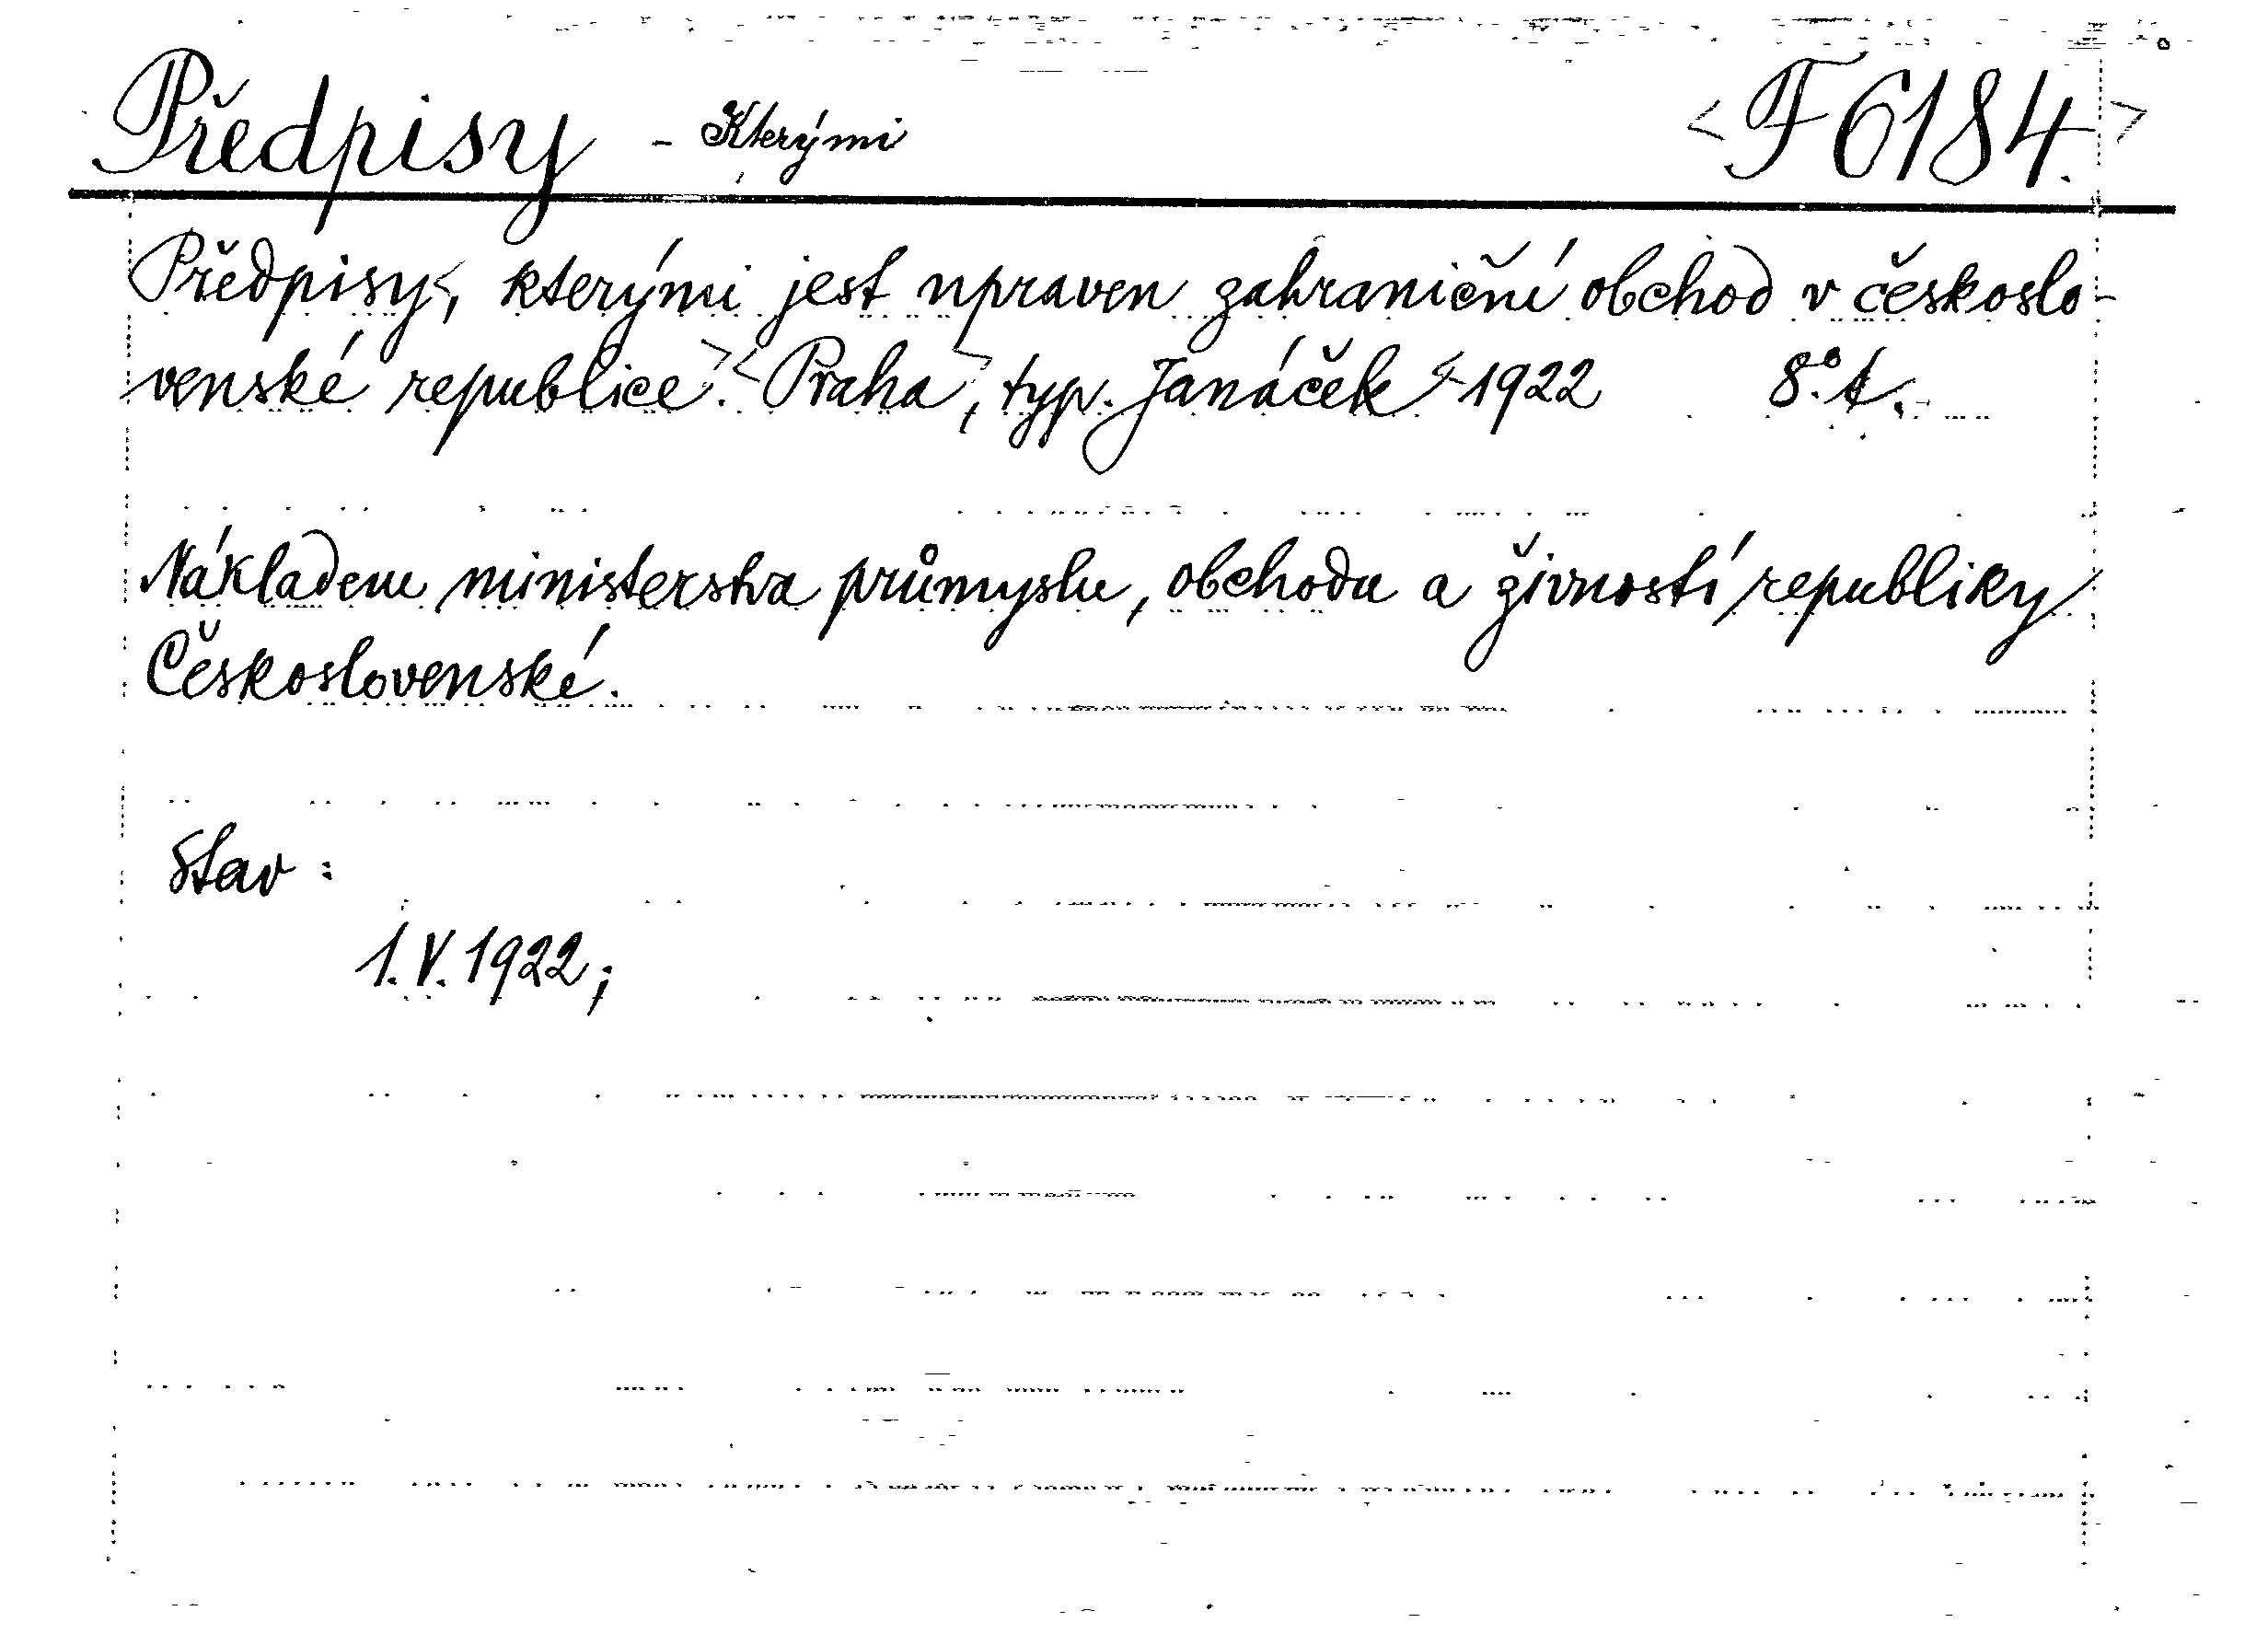 Předpisy - Kterými <F 6184.>
Předpisy<, kterými jest upraven zahraniční obchod v českoslo-
venské republice.> <Praha>, typ. Janáček <1922 8° t.
Nákladem ministerstva průmyslu, obchodu a živností republiky
Československé.
Stav:
1. V. 1922;